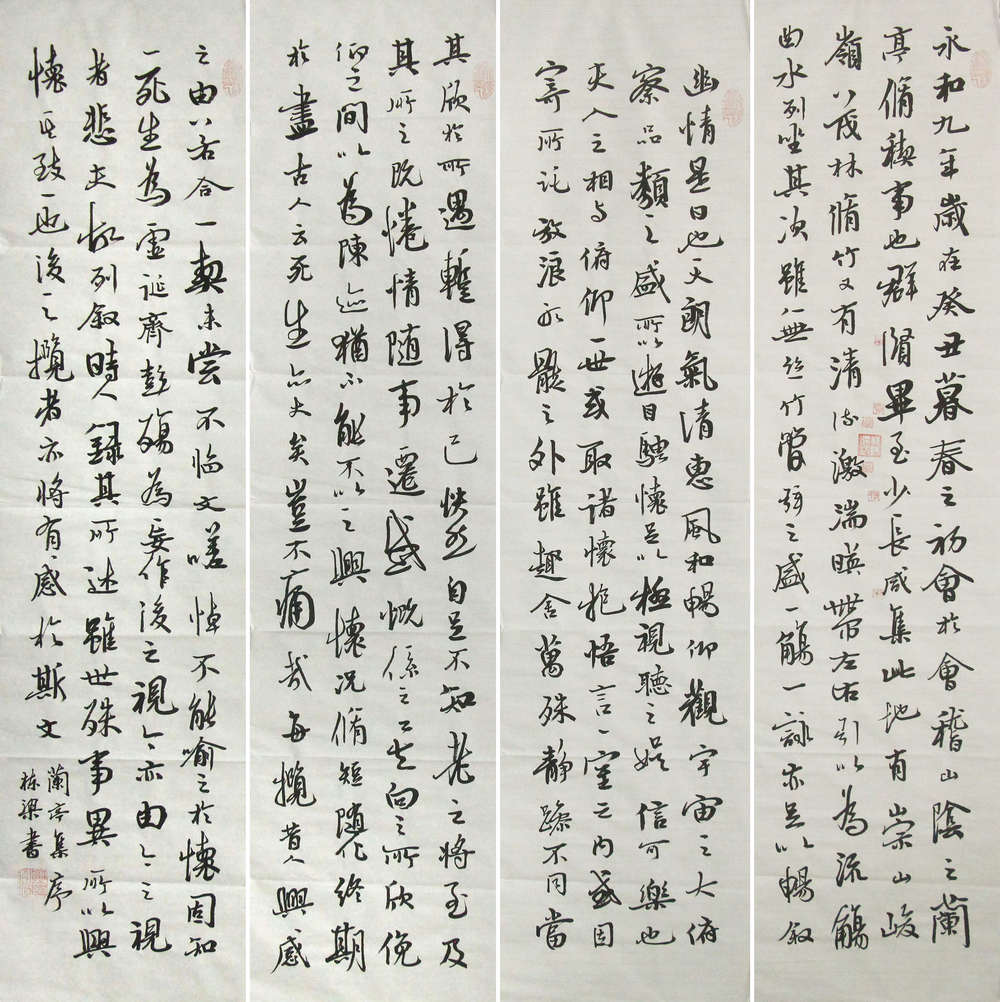 永和九年歲在癸丑暮春之初會於會稽山陰之蘭
亭脩稧事也群賢畢至少長咸集此地有崇山峻
嶺茂林脩竹又有清流激湍暎帶左右引以為流觴
曲水列坐其次雖無絲竹管弦之盛一觴一詠亦足以暢敘
幽情是日也天朗氣清惠風和暢仰觀宇宙之大俯
察品類之盛所以遊目騁懷足以極視聽之娛信可樂也
夫人之相與俯仰一世或取諸懷抱悟言一室之內或因
寄所託放浪形骸之外雖趣舍萬殊靜躁不同當
其欣於所遇蹔得於己怏然自足不知老之將至及
其所之既惓情隨事遷感慨係之矣向之所欣俛
仰之間以為陳迹猶不能不以之興懷況脩短隨化終期
於盡古人云死生亦大矣豈不痛哉每攬昔人興感
之由若合一契未嘗不臨文嗟悼不能喻之於懷固知
一死生為虛誕齊彭殤為妄作後之視今亦由今之視
昔悲夫故列敘時人錄其所述雖世殊事異所以興
懷其致一也後之攬者亦將有感於斯文
蘭亭集序
栋梁書